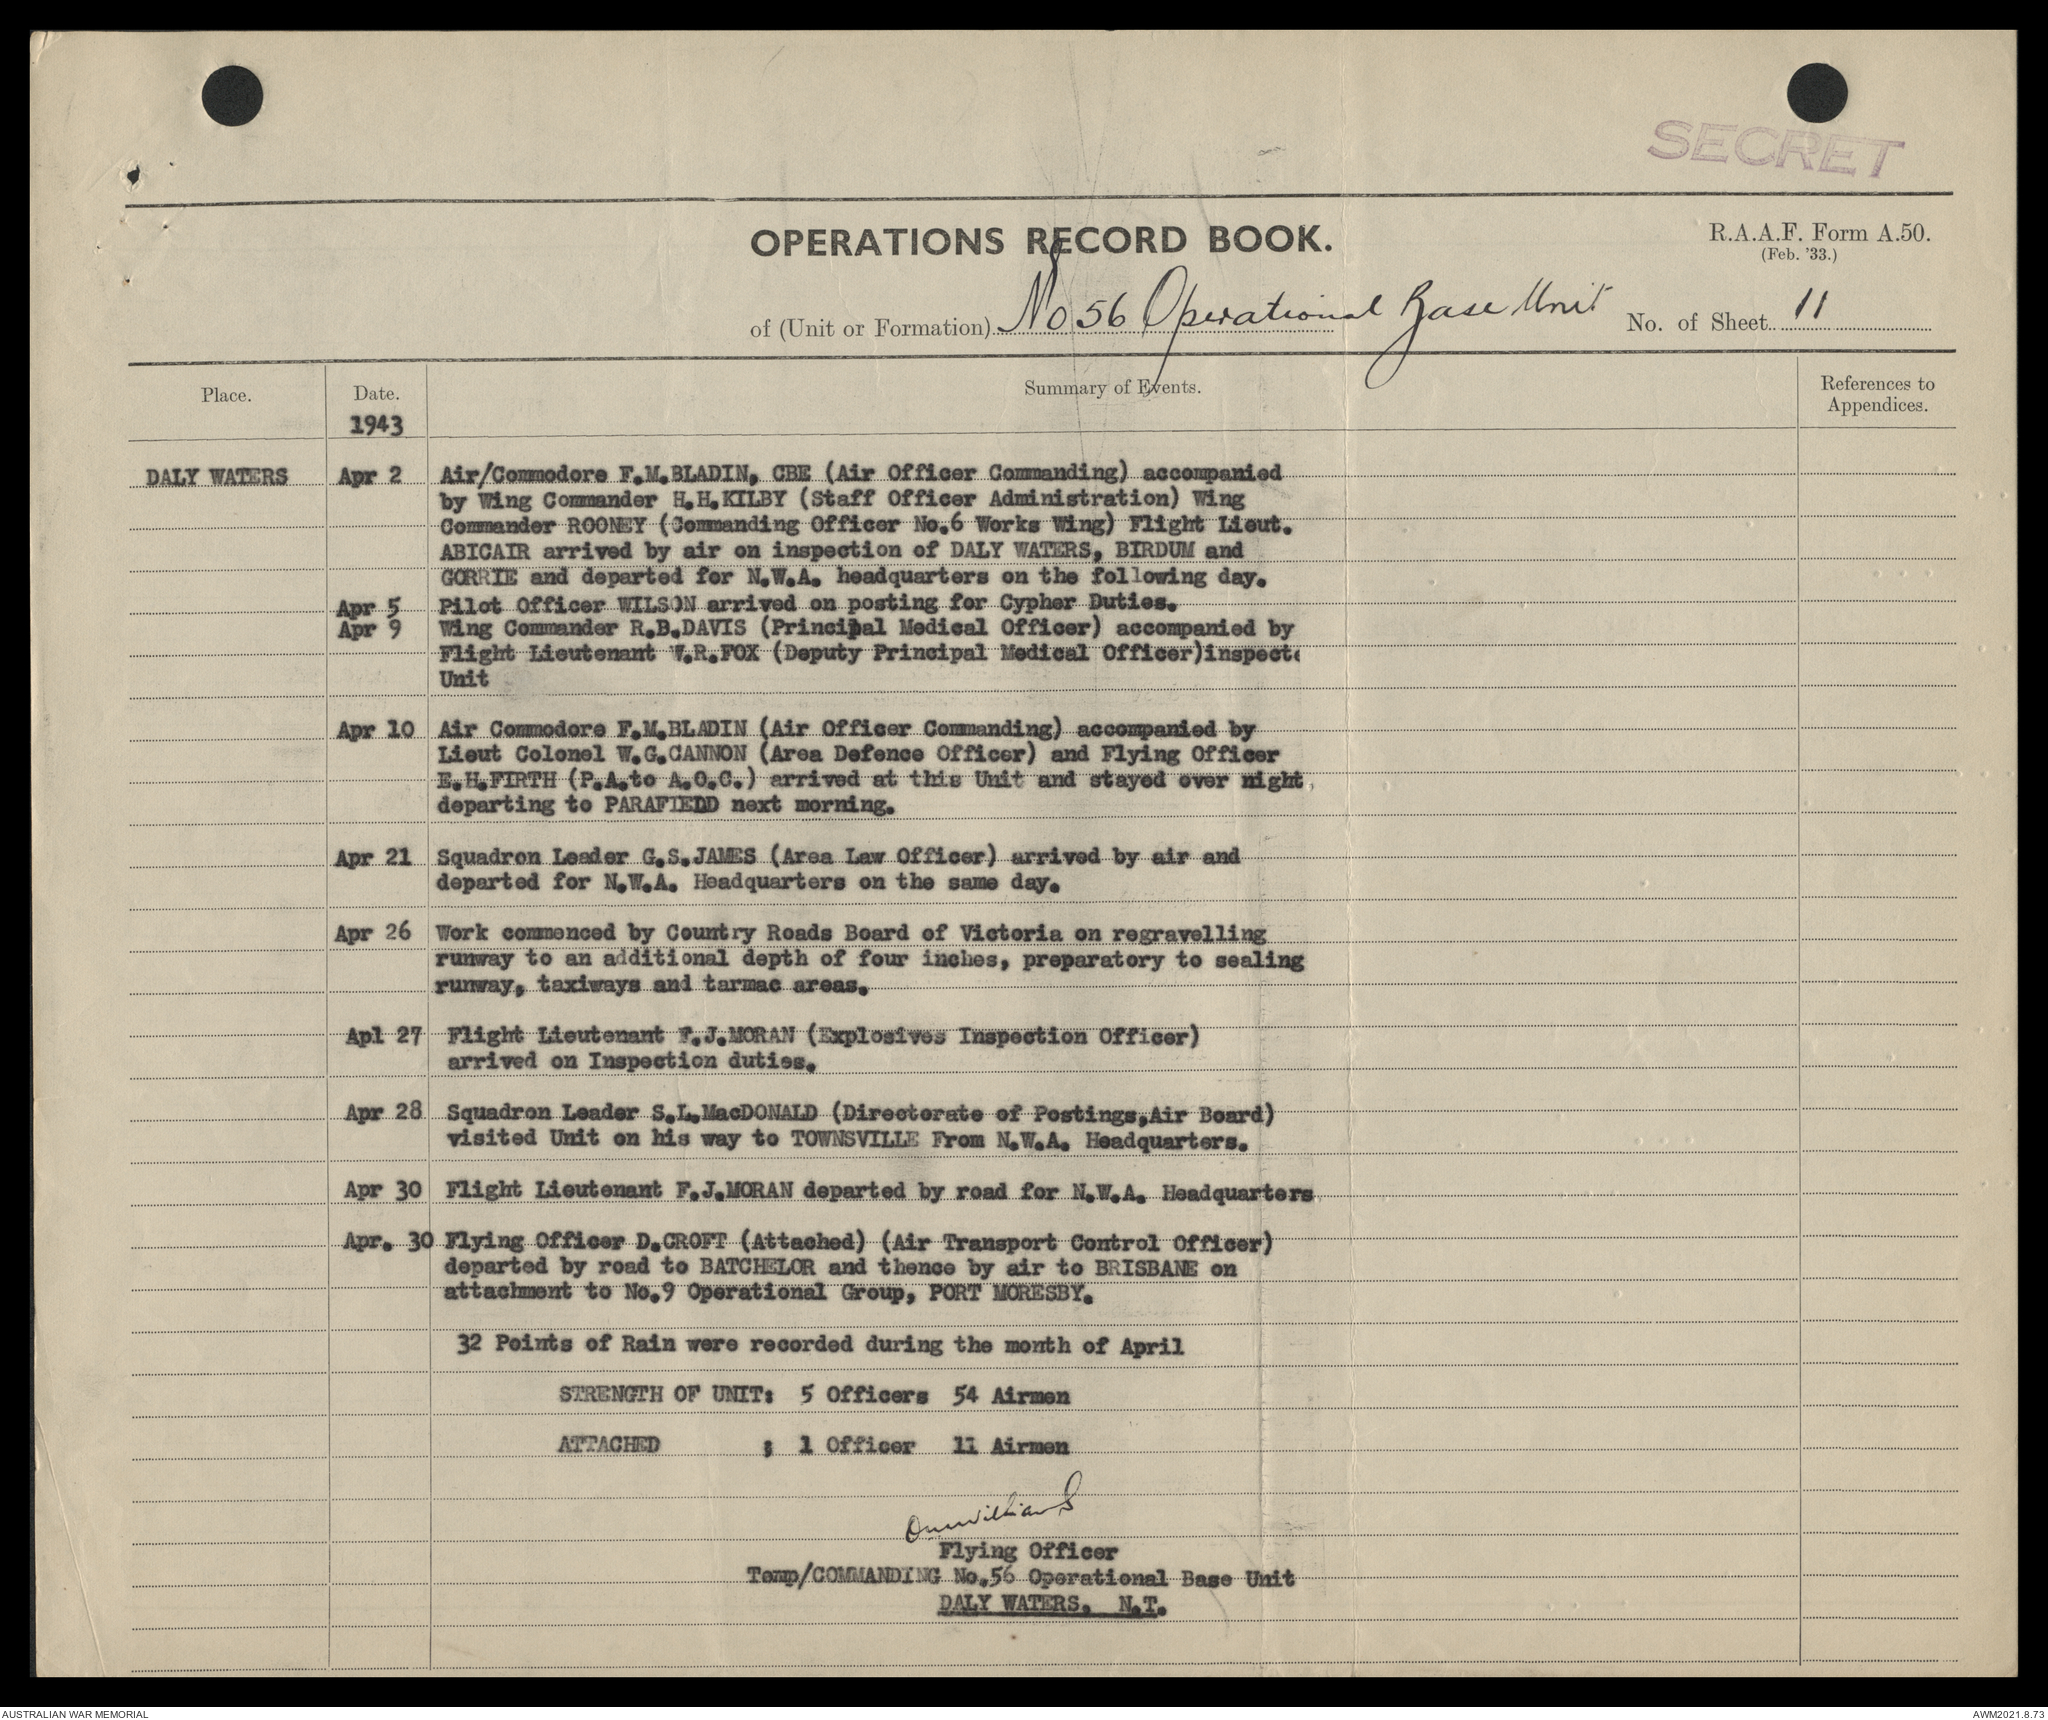 SECRET
OPERATIONS RECORD BOOK.
R.A.A.F. Form A.50.
(Feb. '33.)
of (Unit or Formation) No 56 Operational Base Unit
No. of Sheet 11
Place.
Date.
Summary of Events.
References to
Appendices.
1943
DALY WATERS Apr 2 Air/Commodore F.M.BLADIN, CBE (Air Officer Commanding) accompanied
by Wing Commander H.H.KILBY (Staff Officer Administration) Wing
Commander ROONEY (Commanding Officer No.6 Works Wing) Flight Lieut.
ABICAIR arrived by air on inspection of DALY WATERS, BIRDUM and
GORRIE and departed for N.W.A. headquarters on the following day.
Apr 5 Pilot Officer WILSON arrived on posting for Cypher Duties.
Apr 9 Wing Commander R.B.DAVIS (Principal Medical Officer) accompanied by
Flight Lieutenant W.R.FOX (Deputy Principal Medical Officer)inspect
Unit
Apr 10 Air Commodore F.M.BLADIN (Air Officer Commanding) accompanied by
Lieut Colonel W.G.CANNON (Area Defence Officer) and Flying Officer
E.H.FIRTH (P.A.to A.O.C.) arrived at this Unit and stayed over night,
departing to PARAFIELD next morning.
Apr 21 Squadron Leader G.S.JAMES (Area Law Officer) arrived by air and
departed for N.W.A. Headquarters on the same day.
Apr 26 Work commenced by Country Roads Board of Victoria on regravelling
runway to an additional depth of four inches, preparatory to sealing
runway, taxiways and tarmac areas.
Apl 27 Flight Lieutenant F.J.MORAN (Explosives Inspection Officer)
arrived on Inspection duties.
Apr 28 Squadron Leader S.L.MacDONALD (Directorate of Postings,Air Board)
visited Unit on his way to TOWNSVILLE From N.W.A. Headquarters.
Apr 30 Flight Lieutenant F.J.MORAN departed by road for N.W.A. Headquarters
Apr. 30 Flying Officer D.CROFT (Attached) (Air Transport Control Officer)
departed by road to BATCHELOR and thence by air to BRISBANE on
attachment to No.9 Operational Group, PORT MORESBY.
32 Points of Rain were recorded during the month of April
STRENGTH OF UNIT: 5 Officers 54 Airmen
ATTACHED : 1 Officer 11 Airmen
Flying Officer
Temp/COMMANDING No.56 Operational Base Unit
DALY WATERS. N.T.
AUSTRALIAN WAR MEMORIAL
AWM2021.8.73